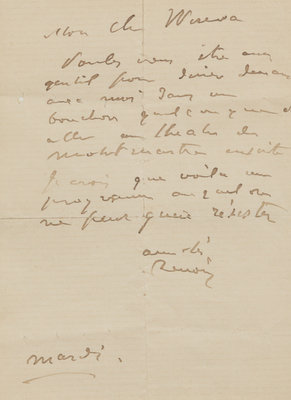 Mon Cher Wisewa
Voulez vous être assez
gentil pour diner demain
avec moi dans un
bouchon quelconque et
aller au theatre de
Montmartre ensuite
Je crois que voila un
programme auquel on
ne peut guere résister
amitiés
Renoir
mardi.